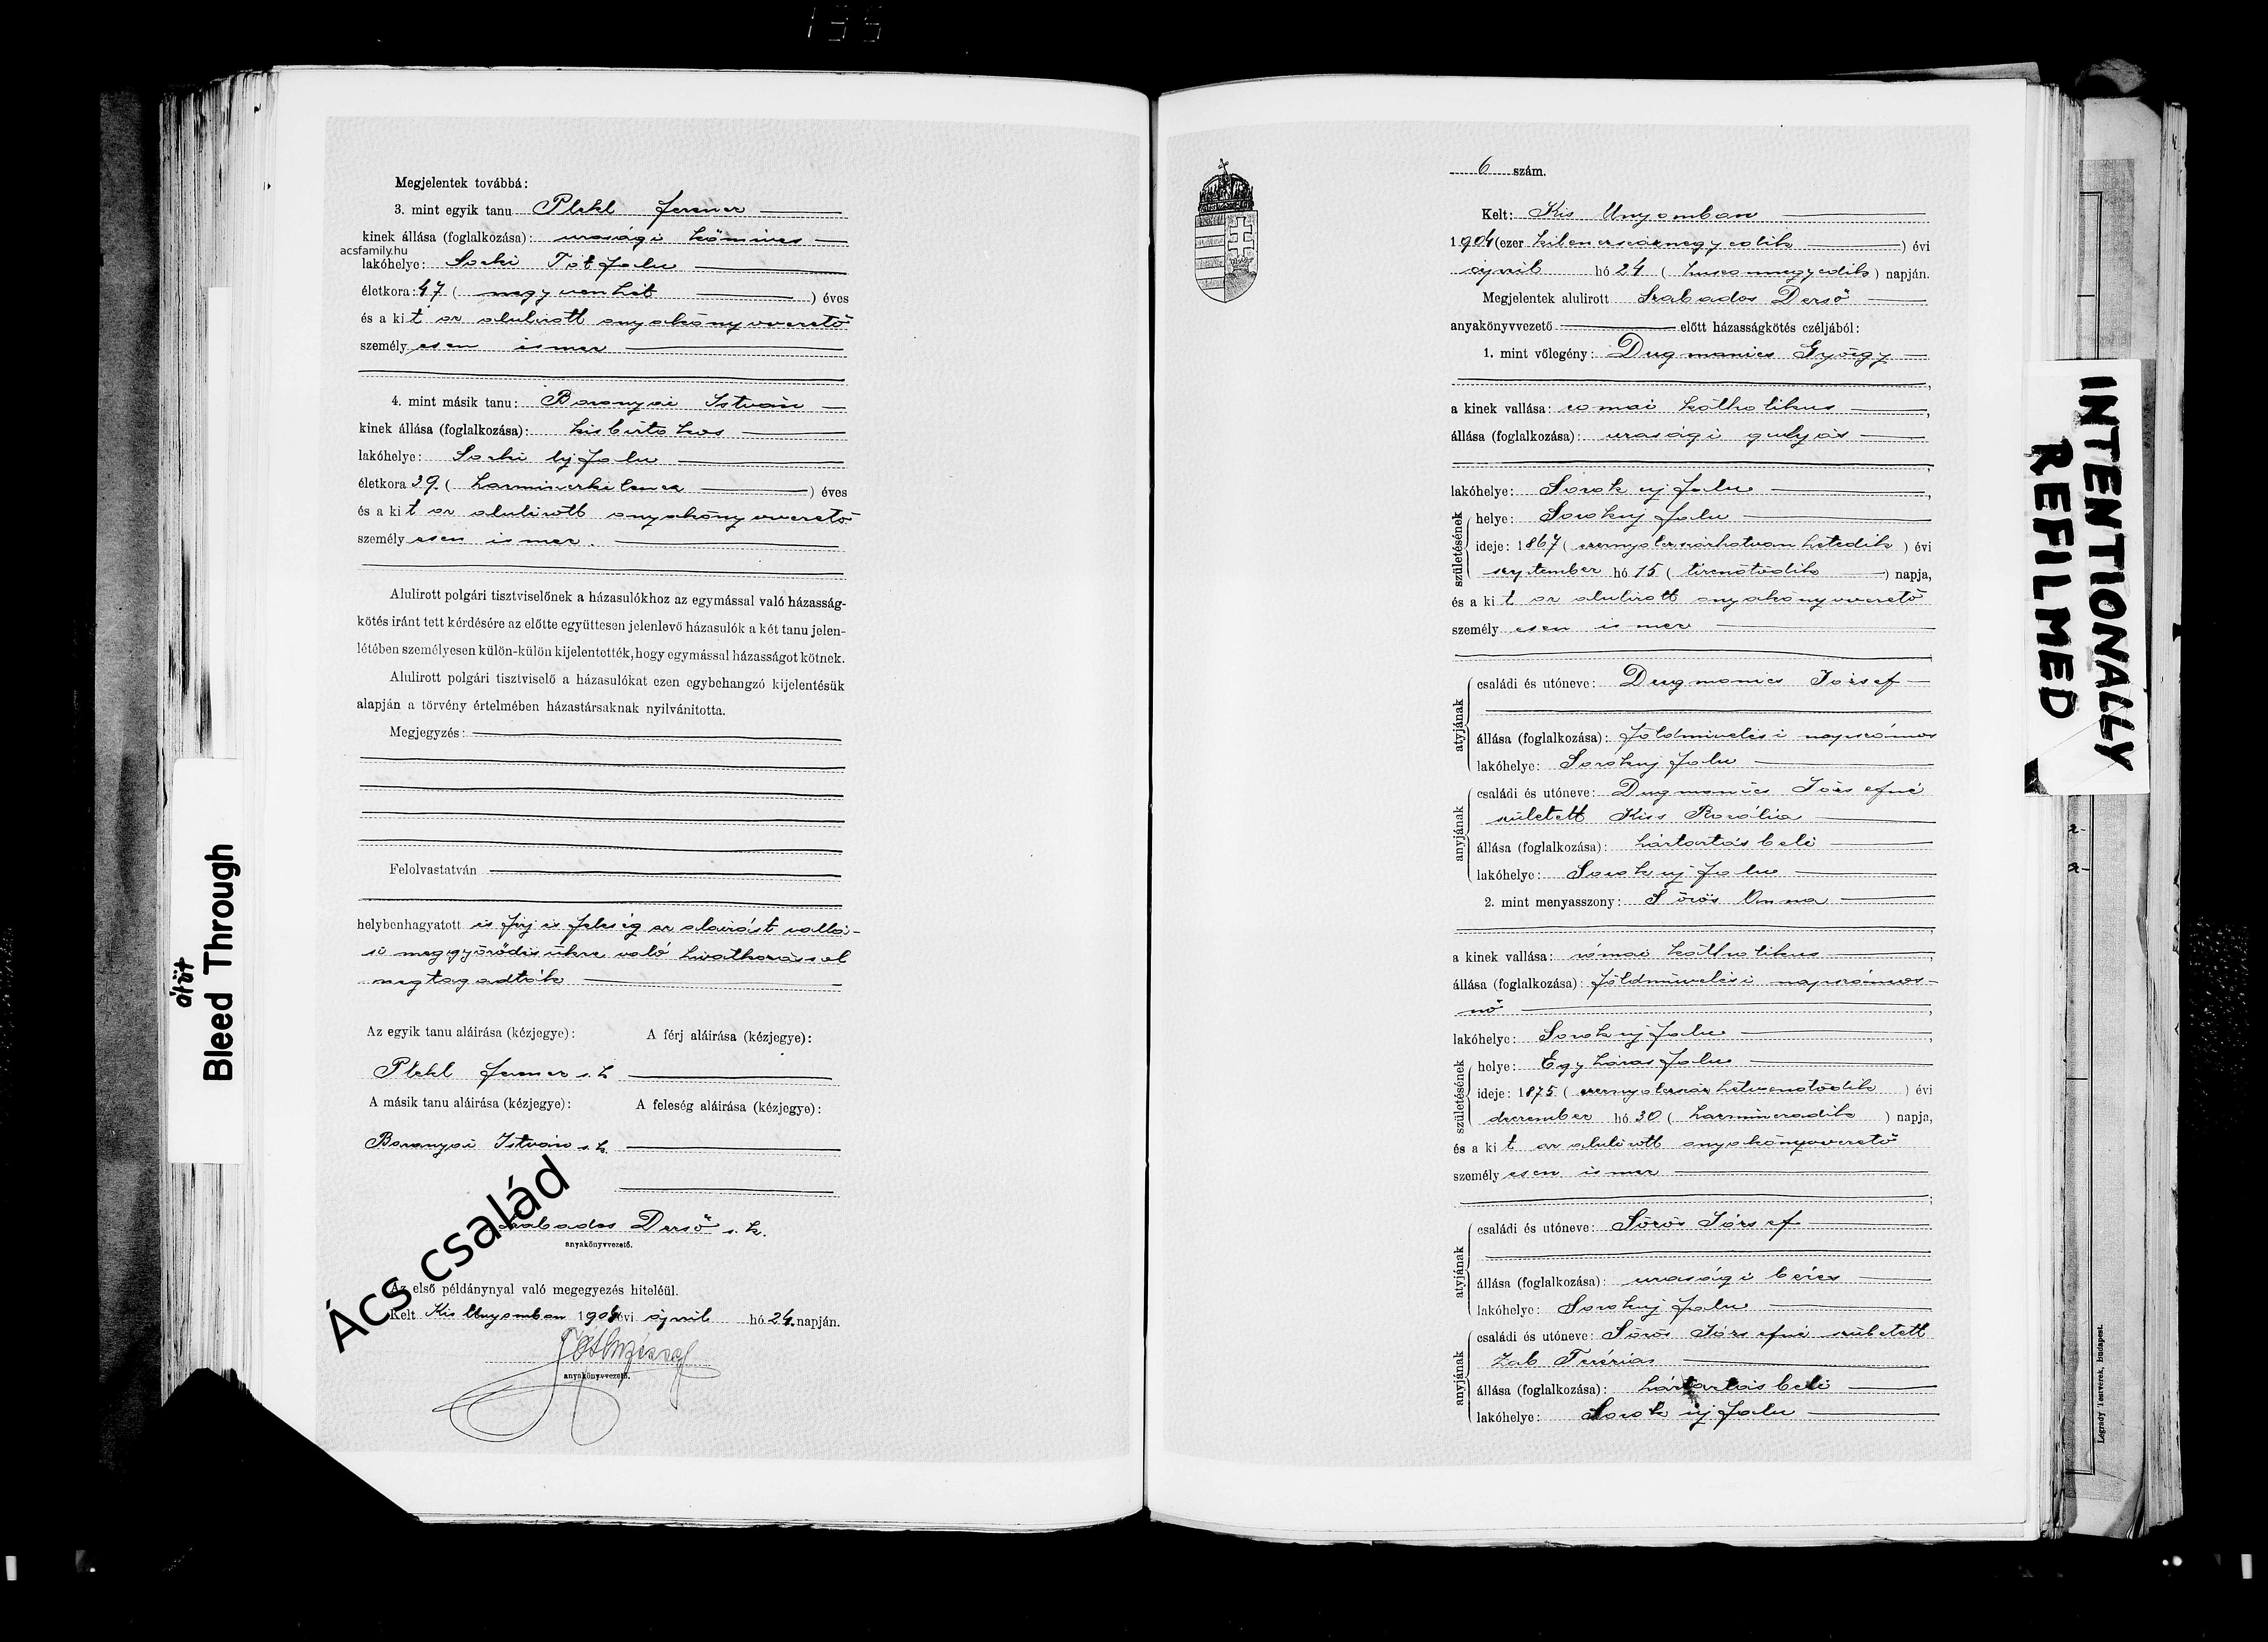 135
Megjelentek továbbá:
3. mint egyik tanu Plekl Ferencz
kinek állása (foglalkozása): urasági kőmives
acsfamily.hu
lakóhelye: Sorki Tótfalu
életkora: 47 (negyvenhét) éves
és a kit az alulirott anyakönyvvezető
személyesen ismer
4. mint másik tanu: Baranyai István
kinek állása (foglalkozása): kisbirtokos
lakóhelye: Sorki Ujfalu
életkora 39. (harminczkilencz) éves
és a kit az alulirott anyakönyvvezető
személyesen ismer.
Alulirott polgári tisztviselőnek a házasulókhoz az egymással való házasság-
kötés iránt tett kérdésére az előtte együttesen jelenlevő házasulók a két tanu jelen-
létében személyesen külön-külön kijelentették, hogy egymással házasságot kötnek.
Alulirott polgári tisztviselő a házasulókat ezen egybehangzó kijelentésük
alapján a törvény értelmében házastársaknak nyilvánitotta.
Megjegyzés:
Felolvastatván
helybenhagyatott és férj és feleség az aláirást vallá-
si meggyőződésükre való hivatkozással
megtagadták
Az egyik tanu aláirása (kézjegye): A férj aláirása (kézjegye):
Plekl Ferencz s. k.
A másik tanu aláirása (kézjegye): A feleség aláirása (kézjegye):
Baranyai István s. k.
Szabados Dersö s. k.
anyakönyvvezető.
Az első példánynyal való megegyezés hiteléül.
Kelt Kis Unyomban 1904 évi április hó 24. napján.
anyakönyvvezető.
Ács család
átüt
Bleed Through
6 szám.
Kelt: Kis Unyomban
1904 (ezer kilenczszáznegyedik) évi
április hó 24 (huszonnegyedik) napján.
Megjelentek alulirott Szabados Dersö
anyakönyvvezető előtt házasságkötés czéljából:
1. mint vőlegény: Dugmanics György
a kinek vallása: római kátholikus
állása (foglalkozása): urasági gulyás
lakóhelye: Sorok uj falu
születésének
helye: Sorokuj falu
ideje: 1867 (ezernyolczszázhatvanhetedik) évi
september hó 15 (tizenötödik) napja,
és a kit az alulirott anyakönyvvezető
személyesen ismer
atyjának
családi és utóneve: Dugmanics József
állása (foglalkozása): földmivelési napszámos
lakóhelye: Sorokuj falu
anyjának
családi és utóneve: Dugmanics Józsefné
született Kiss Rozália
állása (foglalkozása): háztartásbeli
lakóhelye: Sorok uj falu
2. mint menyasszony: Sörös Anna
a kinek vallása: római kátholikus
állása (foglalkozása): földmivelési napszámos-
nő
lakóhelye: Sorok uj falu
születésének
helye: Egyházasfalu
ideje: 1875. (ezernyolczszázhetvenötödik) évi
deczember hó 30 (harminczadik) napja,
és a kit az alulirott anyakönyvvezető
személyesen ismer
atyjának
családi és utóneve: Sörös József
állása (foglalkozása): urasági béres
lakóhelye: Sorokuj falu
anyjának
családi és utóneve: Sörös Józsefné született
Zab Terézias
állása (foglalkozása): háztartásbeli
lakóhelye: Sorok uj falu
INTENTIONALLY
REFILMED
Légrády Testvérek, Budapest.